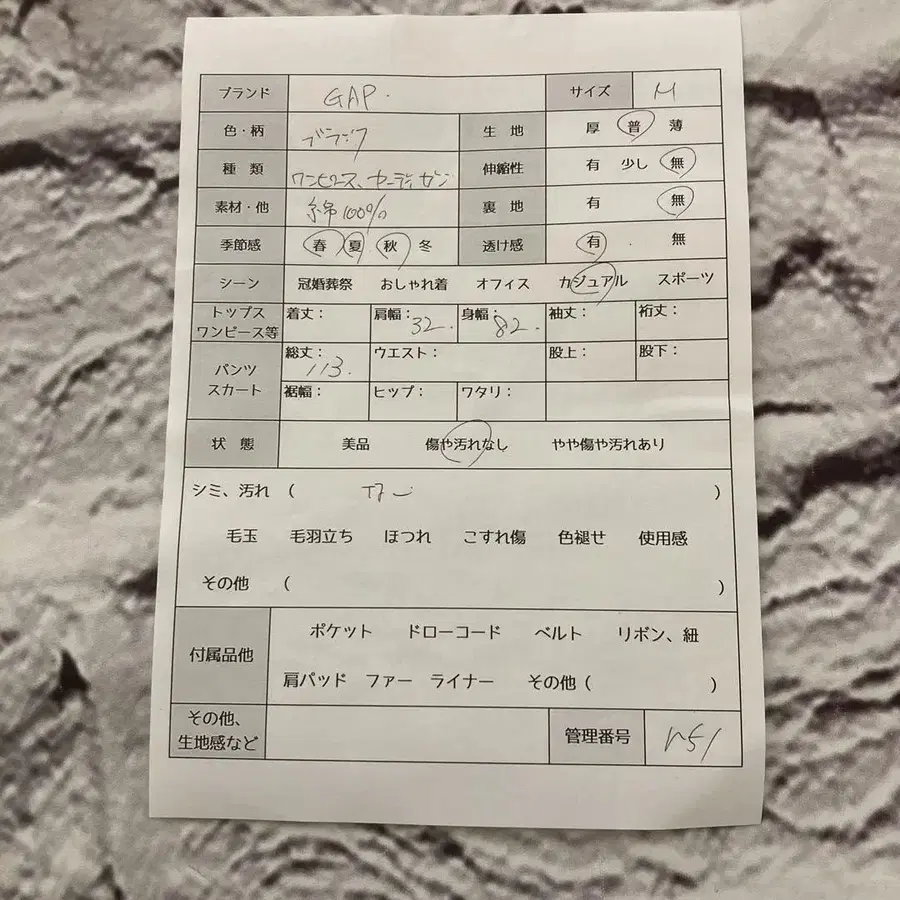 ブランド GAP. サイズ M
色・柄 ブラック 生地 厚 普 薄
種類 ワンピース、カーディガン 伸縮性 有 少し 無
素材・他 綿100% 裏地 有 無
季節感 春 夏 秋 冬 透け感 有 . 無
シーン 冠婚葬祭 おしゃれ着 オフィス カジュアル スポーツ
トップス ワンピース等 着丈： 肩幅：32. 身幅：82. 袖丈： 裄丈：
パンツ スカート 総丈：113. ウエスト： 股上： 股下：
裾幅： ヒップ： ワタリ：
状態 美品 傷や汚れなし やや傷や汚れあり
シミ、汚れ （ なし ）
毛玉 毛羽立ち ほつれ こすれ傷 色褪せ 使用感
その他 （ ）
付属品他 ポケット ドローコード ベルト リボン、紐
肩パッド ファー ライナー その他（ ）
その他、
生地感など 管理番号